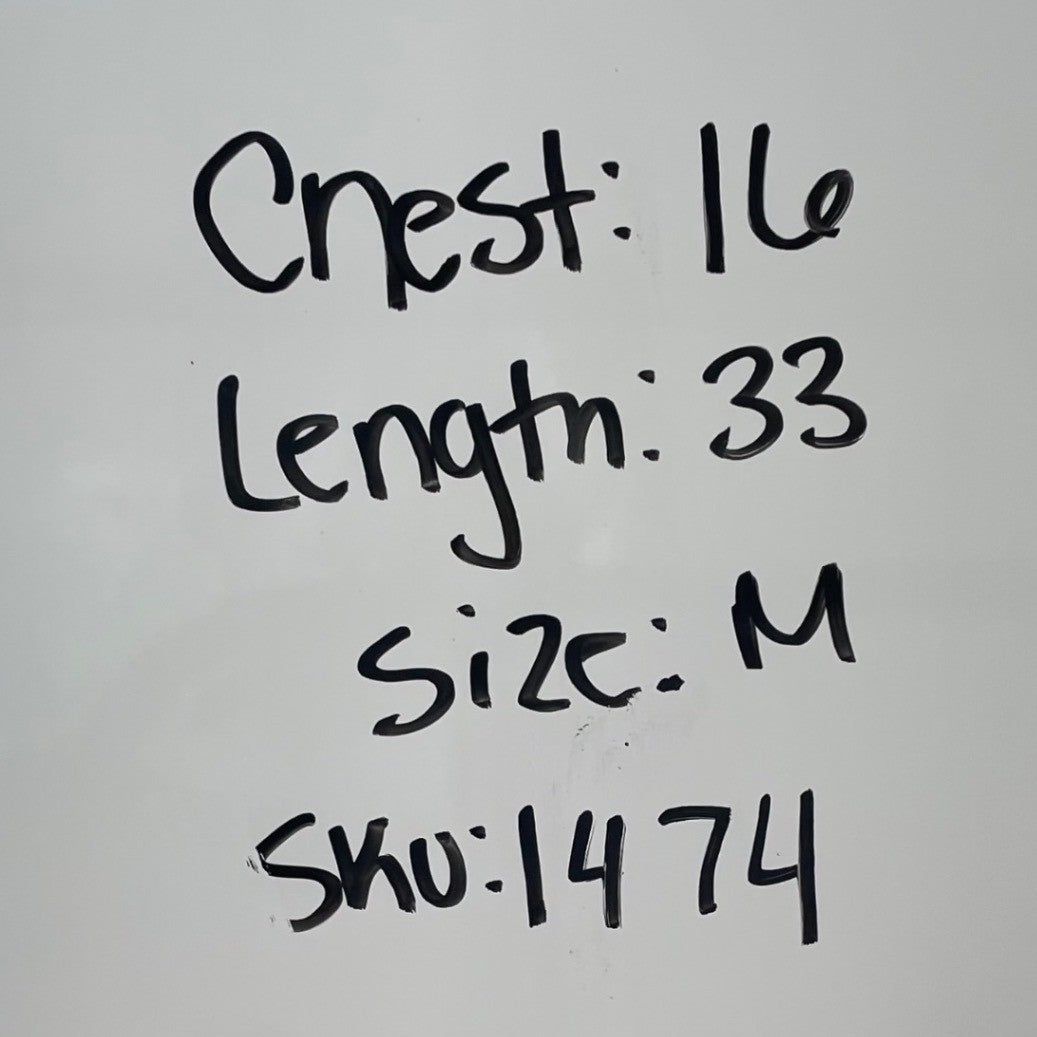 Chest: 16
Length: 33
Size: M
SKU: 1474